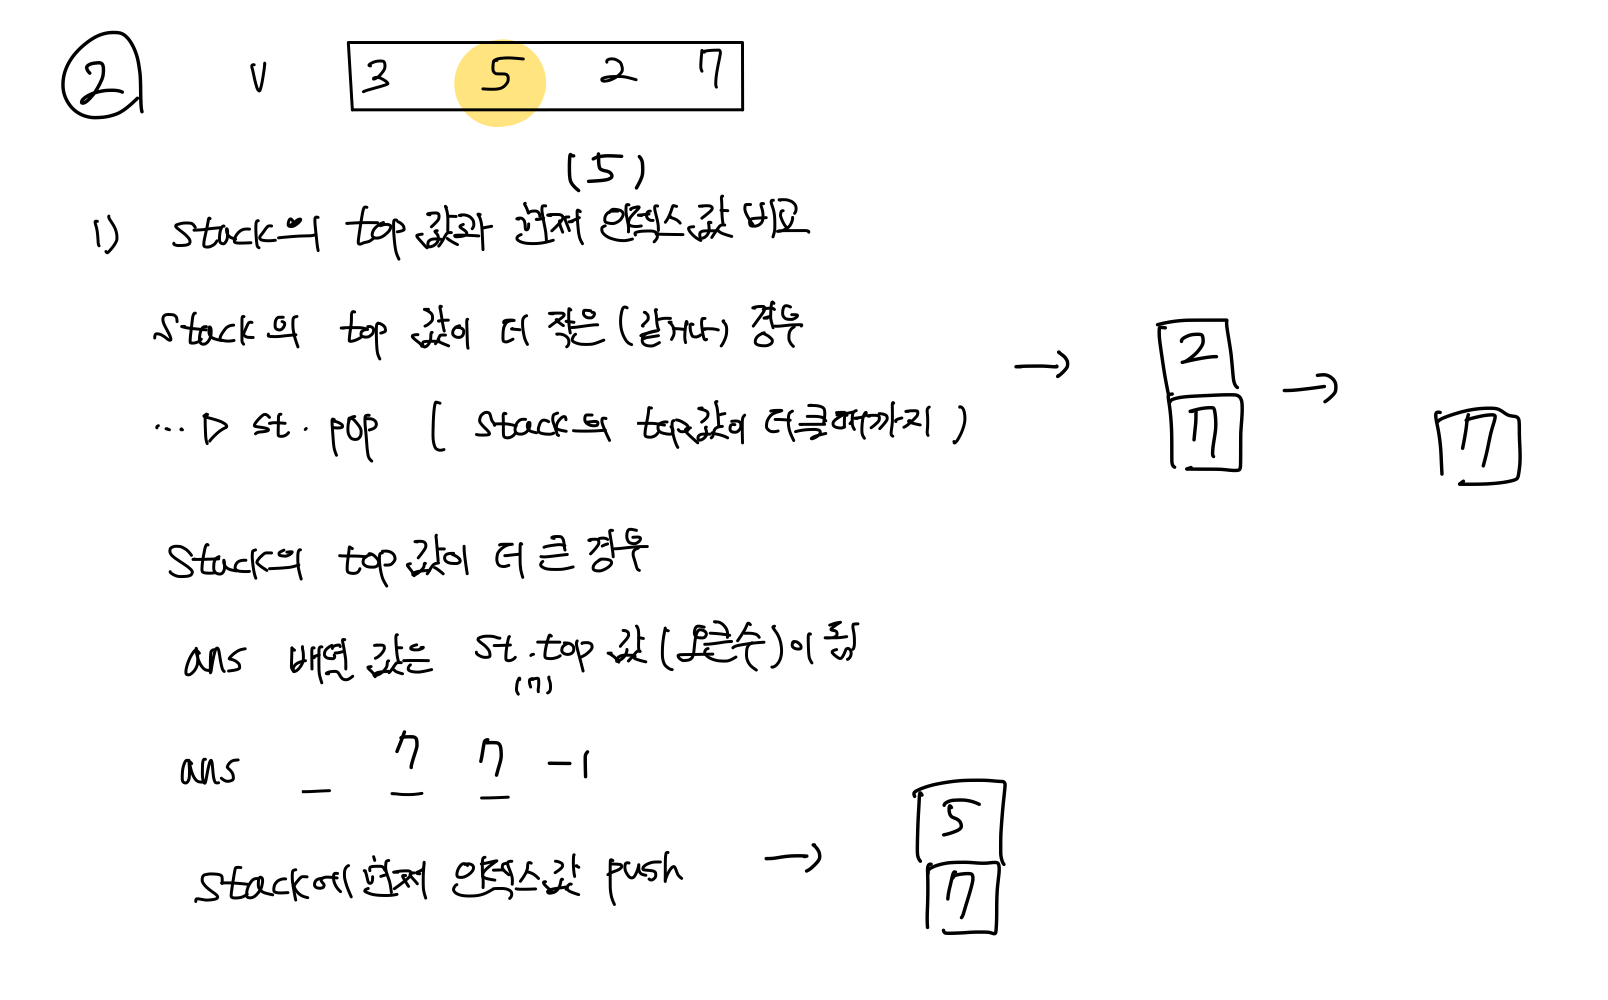 2 v 3 5 2 7
(5)
1) stack의 top 값과 현재 인덱스값 비교
stack의 top 값이 더 작은 (같거나) 경우
... ▷ st. pop ( stack의 top값이 더 클 때까지 )
→ 2 →
7
7
stack의 top값이 더 큰 경우
ans 배열 값은 st.top 값 (오큰수)이 됨
(7)
ans _ 7 7 -1
stack에 현재 인덱스값 push → 5
7